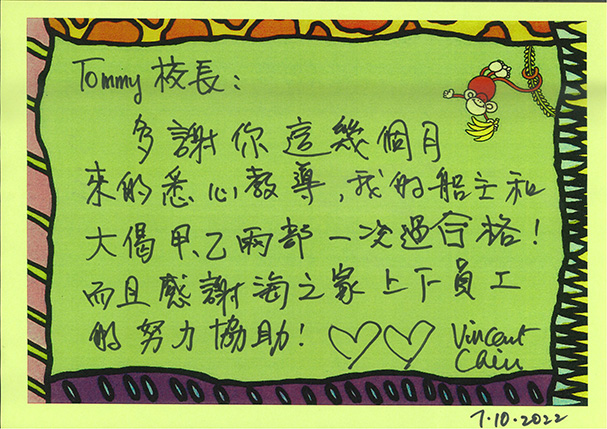 Tommy 校長：
多謝你這幾個月
來的悉心教導，我的船主和
大偈甲、乙兩部一次過合格！
而且感謝海之家上下員工
的努力協助！ Vincent
Chiu
7.10.2022